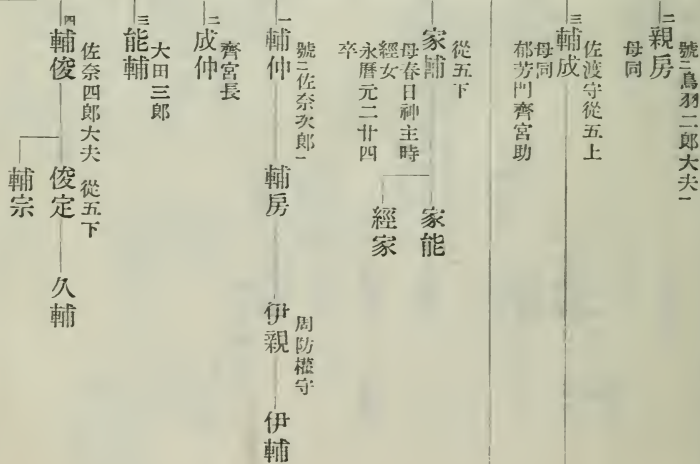 二
親房
號二鳥羽二郎大夫一
母同
三
輔成
佐渡守從五上
母同
郁芳門齊宮助
家輔
從五下
母春日神主時
經女
永曆元二廿四
卒
家能
經家
一
輔仲
號二佐奈次郎一
輔房
伊親
周防權守
伊輔
二
成仲
齊宮長
三
能輔
大田三郎
四
輔俊
佐奈四郎大夫 從五下
俊定
久輔
輔宗